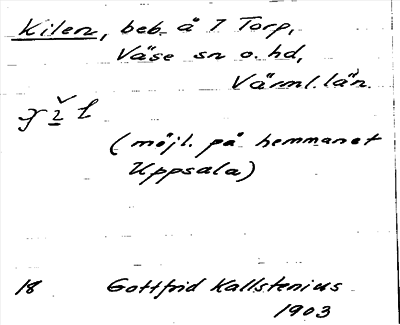 Kilen, beb. å 7 Torp,
Väse sn o. hd,
Värml. län.
(möjl. på hemmanet
Uppsala)
18 Gottfrid Kallstenius
1903